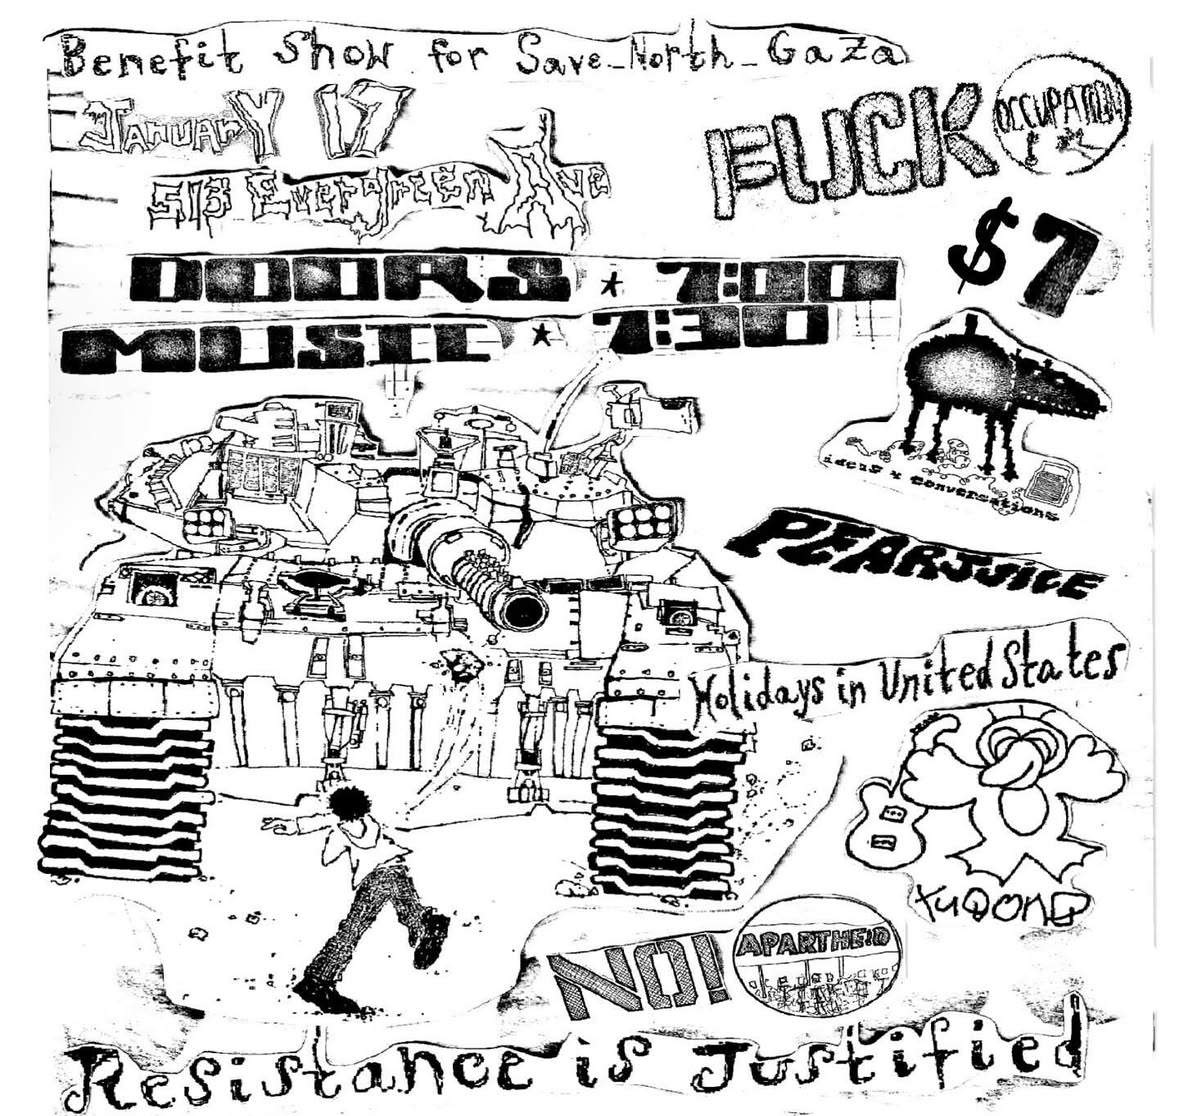 Benefit Show for Save_North_Gaza
January 17
513 Evergreen Ave
FUCK OCCUPATION
$7
DOORS ★ 7:00
MUSIC ★ 7:30
ideas x conversations
PEARJUICE
Holidays in United States
YuQong
NO! APARTHEID
Resistance is Justified